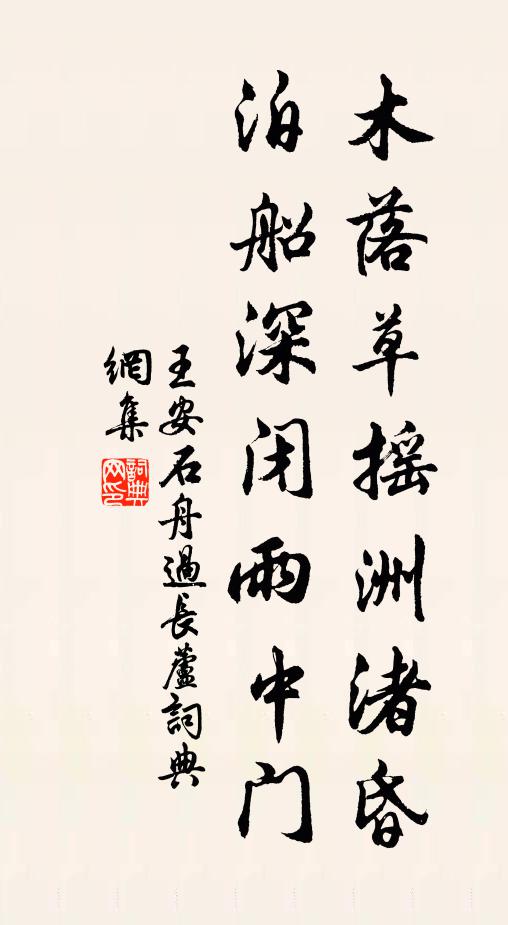 木落草摇洲渚昏
泊船深闭雨中门
王安石舟過長蘆詞典
網集
詞典
网印